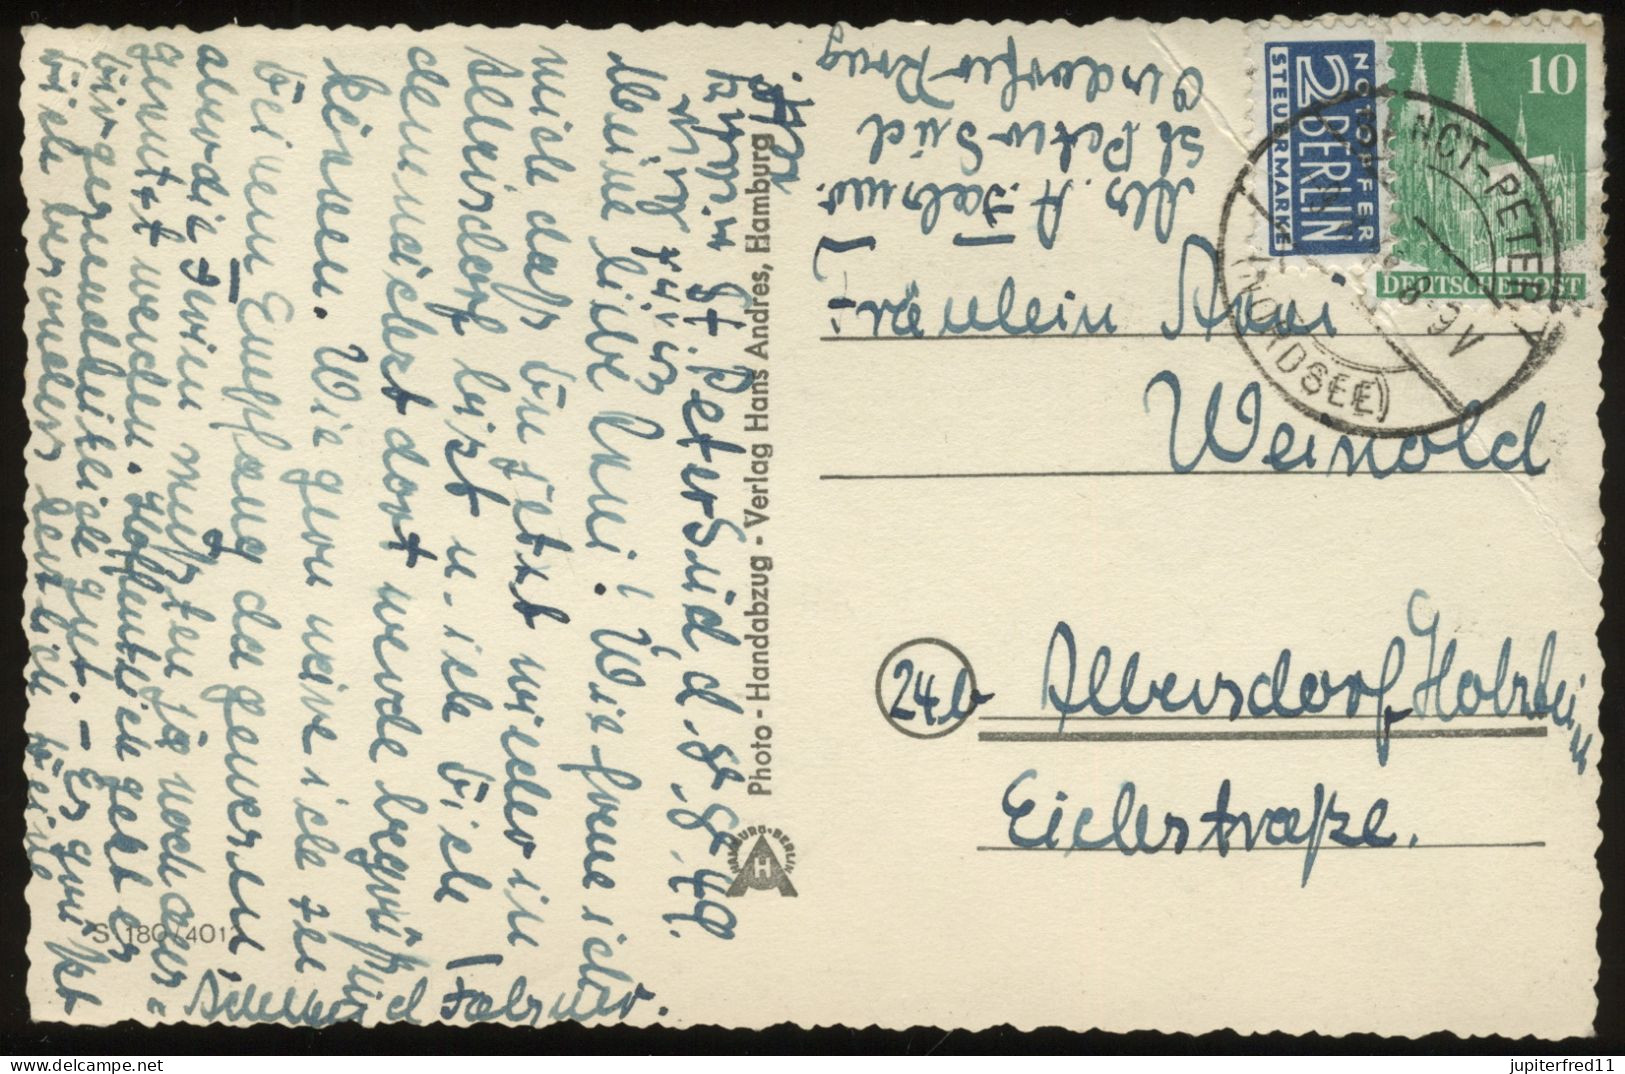 St. Peter Süd, d. 8.8.49.
Meine liebe Anni! Wie freue ich
mich daß Du jetzt wieder in
Albersdorf bist u. ich Dich
demnächst dort werde begrüßen
können. Wie gern wäre ich zu
Deinem Empfang da gewesen,
aber die müßten ja noch aus=
genutzt werden. Hoffentlich geht es
Dir gesundheitlich gut. – Es grüßt
Dich herzlich Deine
Photo - Handabzug - Verlag Hans Andres, Hamburg
HAMBURG · BERLIN
H
S 180/401
Abs. A.
St Peter Süd
Fräulein Anni
Weinold
24b Albersdorf Holstein
Eichstraße.
NOTOPFER
2 BERLIN
STEUERMARKE
10
DEUTSCHE POST
SANCT-PETER
8-9 V
(NORDSEE)
delcampe.net
jupiterfred11